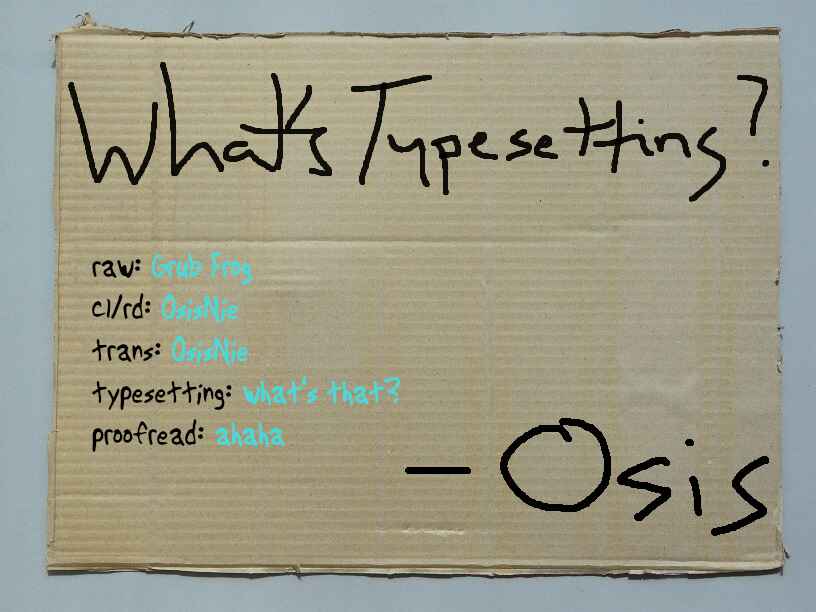 What's Typesetting?
raw: Grub Frog
cl/rd: OsisNie
trans: OsisNie
typesetting: what's that?
proofread: ahaha
— Osis